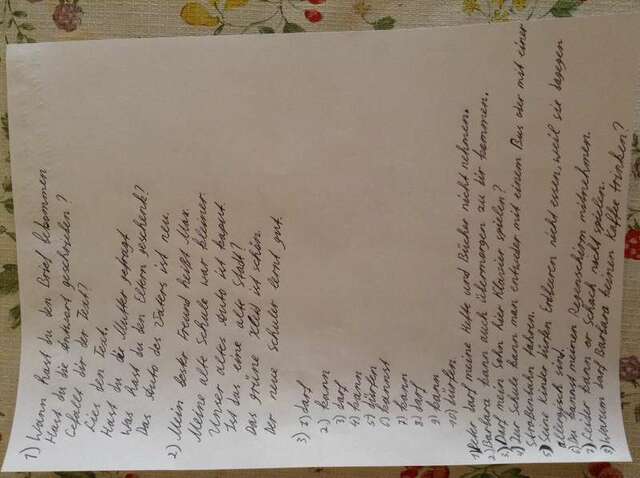 1) Wann hast du den Brief bekommen
Hast du die Antwort geschrieben?
Gefällt dir der Text?
Lies den Text.
Hast du die Mutter gefragt
Was hast du den Eltern geschenk?
Das Auto des Vaters ist neu.
2) Mein bester Freund heißt Max.
Meine alte Schule war kleiner.
Unser altes Auto ist kaput.
Ist das eine alte Stadt?
Das grüne Kleid ist schön
Der neue Schuler lernt gut.
3) 1) darf
2) kann
3) darf
4) kann
5) dürfen
6) kannst
7) kann
8) darf
9) kann
10) dürfen
1) Peter darf meine Hefte und Bücher nicht nehmen.
2) Barbara kann auch übermorgen zu dir kommen.
3) Darf mein Sohn hier Klavier spielen?
4) Zur Schule kann man entweder mit einem Bus oder mit einer
Straßenbahn fahren.
5) Seine Kinder dürfen Erdbeeren nicht essen, weil sie dagegen
allergisch sind.
6) Du kannst meinen Regenschirm mitnehmen.
7) Leider kann er Schach nicht spielen.
8) Warum darf Barbara keinen Kaffee trinken?